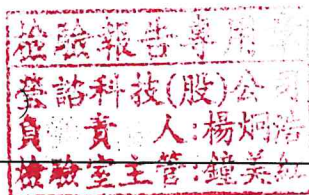 檢驗報告專用章
𧬋諮科技(股)公司
負責人:楊炯浩
檢驗室主管:鐘美紅